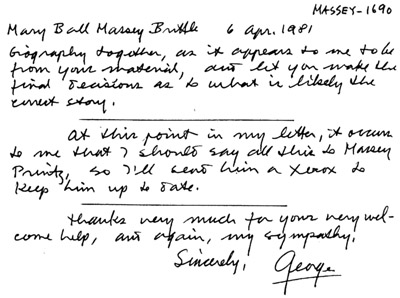 MASSEY-1690
Mary Ball Massey Brittle 6 Apr. 1981
biography together, as it appears to me to be
from your material, and let you make the
final decisions as to what is likely the
correct story.
At this point in my letter, it occurs
to me that I should say all this to Massey
Printz, so I'll send him a Xerox to
keep him up to date.
Thanks very much for your very wel-
come help, and again, my sympathy.
Sincerely, George